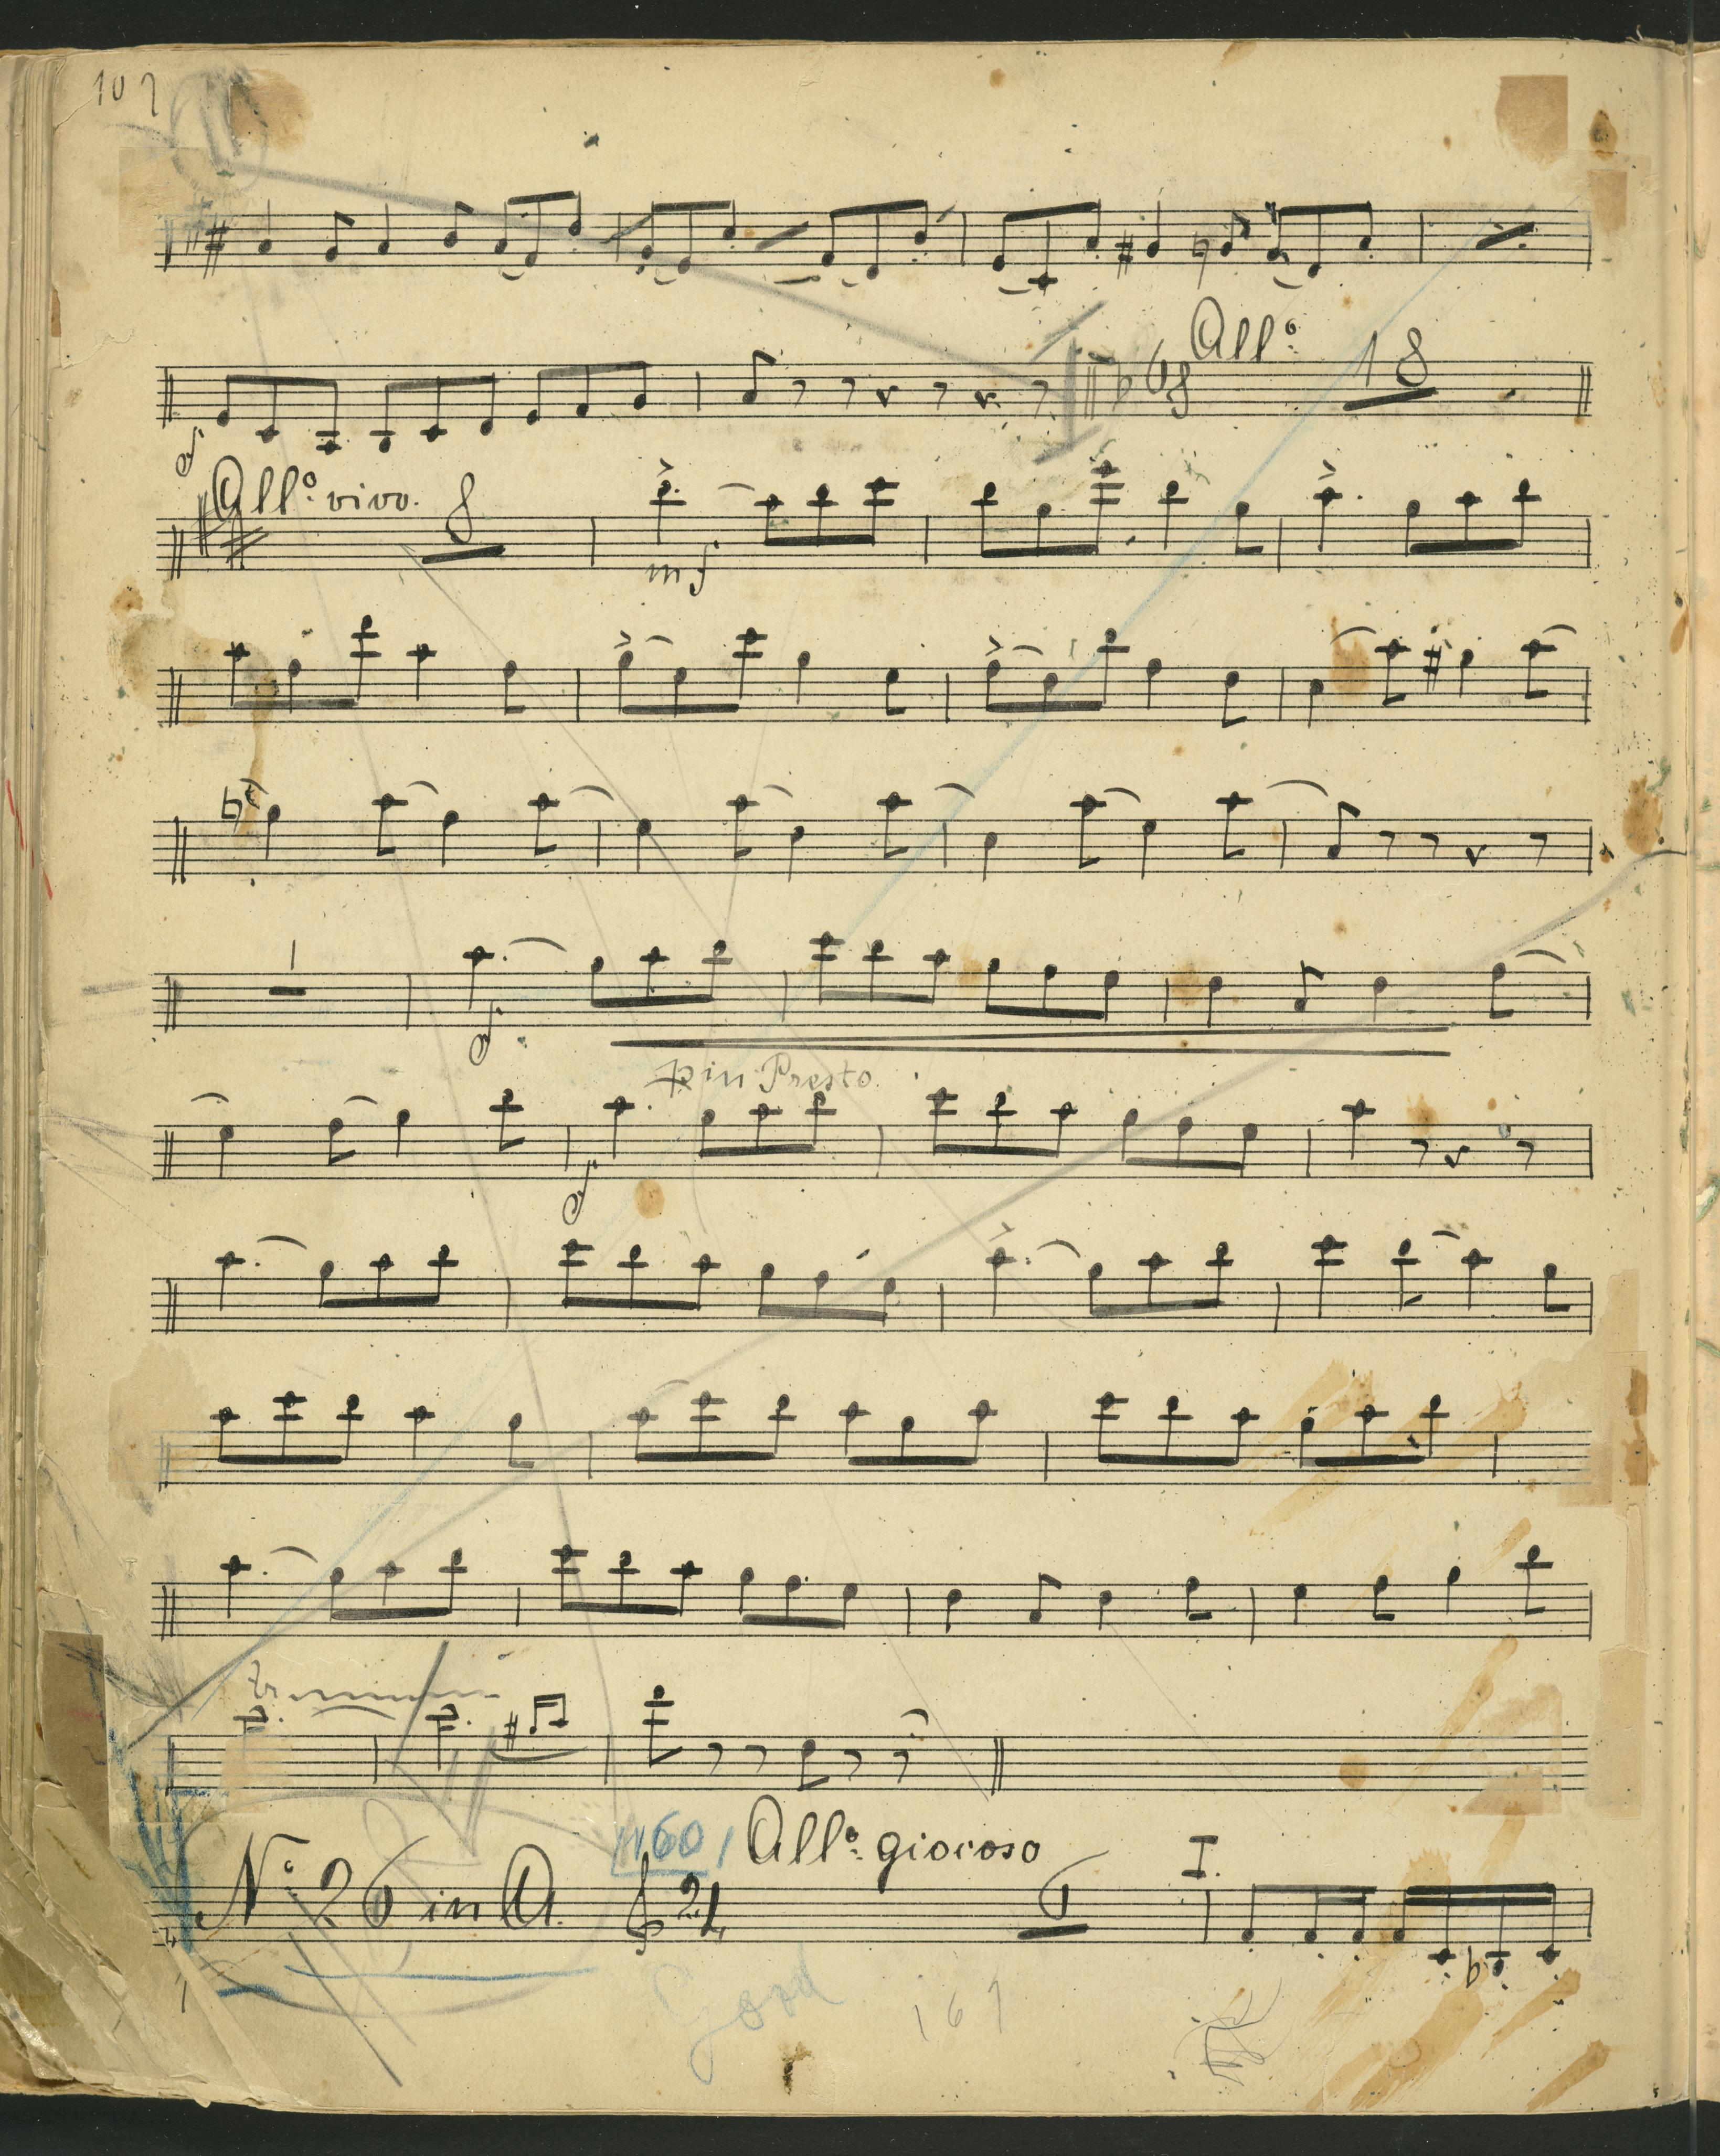 107
11
All.º 18
6 8
f
All.º vivo. 8
mf
1
f
più Presto
f
tr
N.º 26 in A. 160 All.º giocoso 6 I.
2 4
Good 167